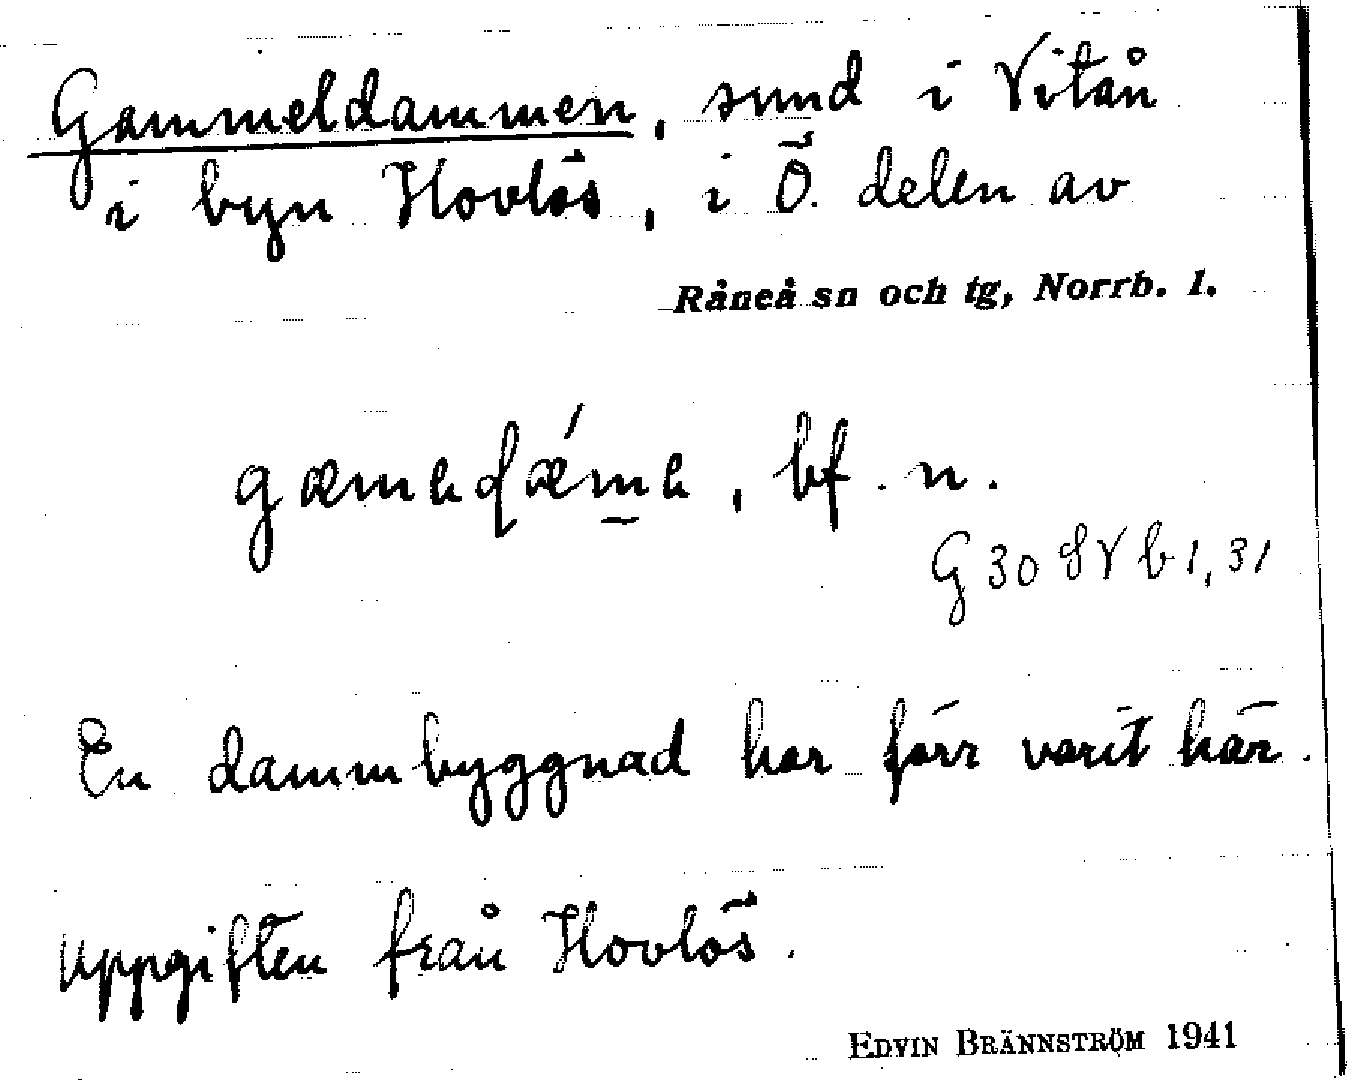 Gammeldammen, sund i Vitån
i byn Hovlös, i Ö. delen av
Råneå sn och tg, Norrb. l.
bf. n.
En dammbyggnad har förr varit här.
Uppgiften från Hovlös.
EDVIN BRÄNNSTRÖM 1941